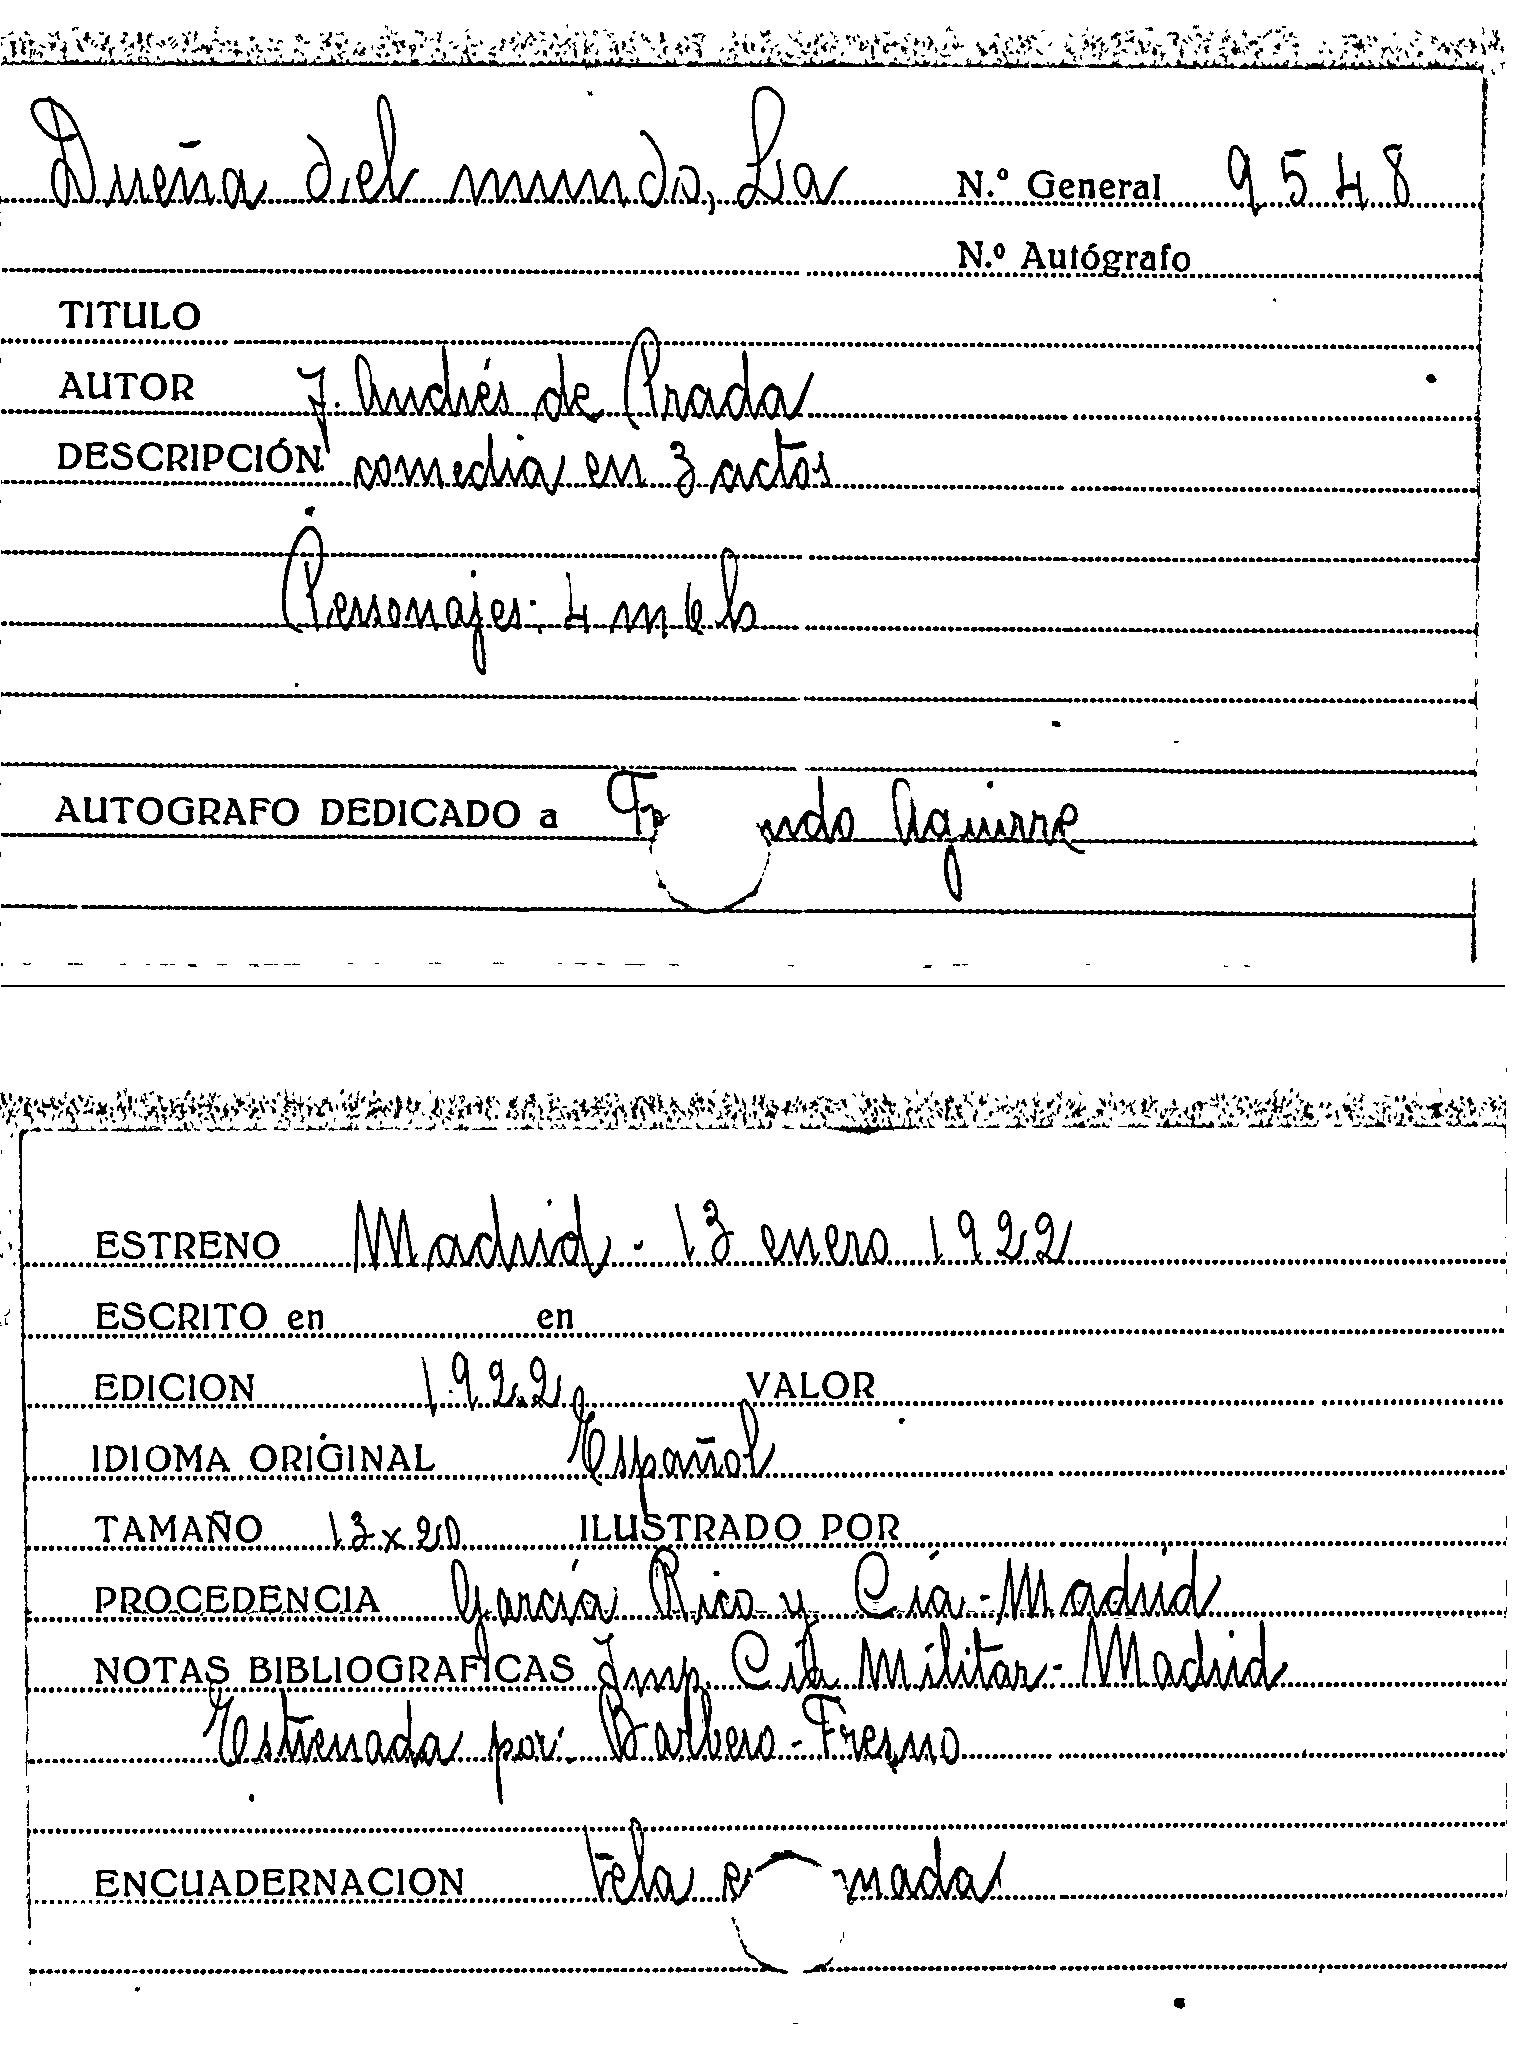 Dueña del mundo, La N.º General 9548
N.º Autógrafo
TITULO
AUTOR J. Andrés de Prada
DESCRIPCIÓN comedia en 3 actos
Personajes: 4 m 6 h
AUTOGRAFO DEDICADO a ndo Aguirre
ESTRENO Madrid - 13 enero 1922
ESCRITO en en
EDICION 1922 VALOR
IDIOMA ORIGINAL Español
TAMAÑO 13 x 20 ILUSTRADO POR
PROCEDENCIA García Rico y Cía - Madrid
NOTAS BIBLIOGRAFICAS Imp. Militar - Madrid
Estrenada por: Barbero - Fresno
ENCUADERNACION tela e nada